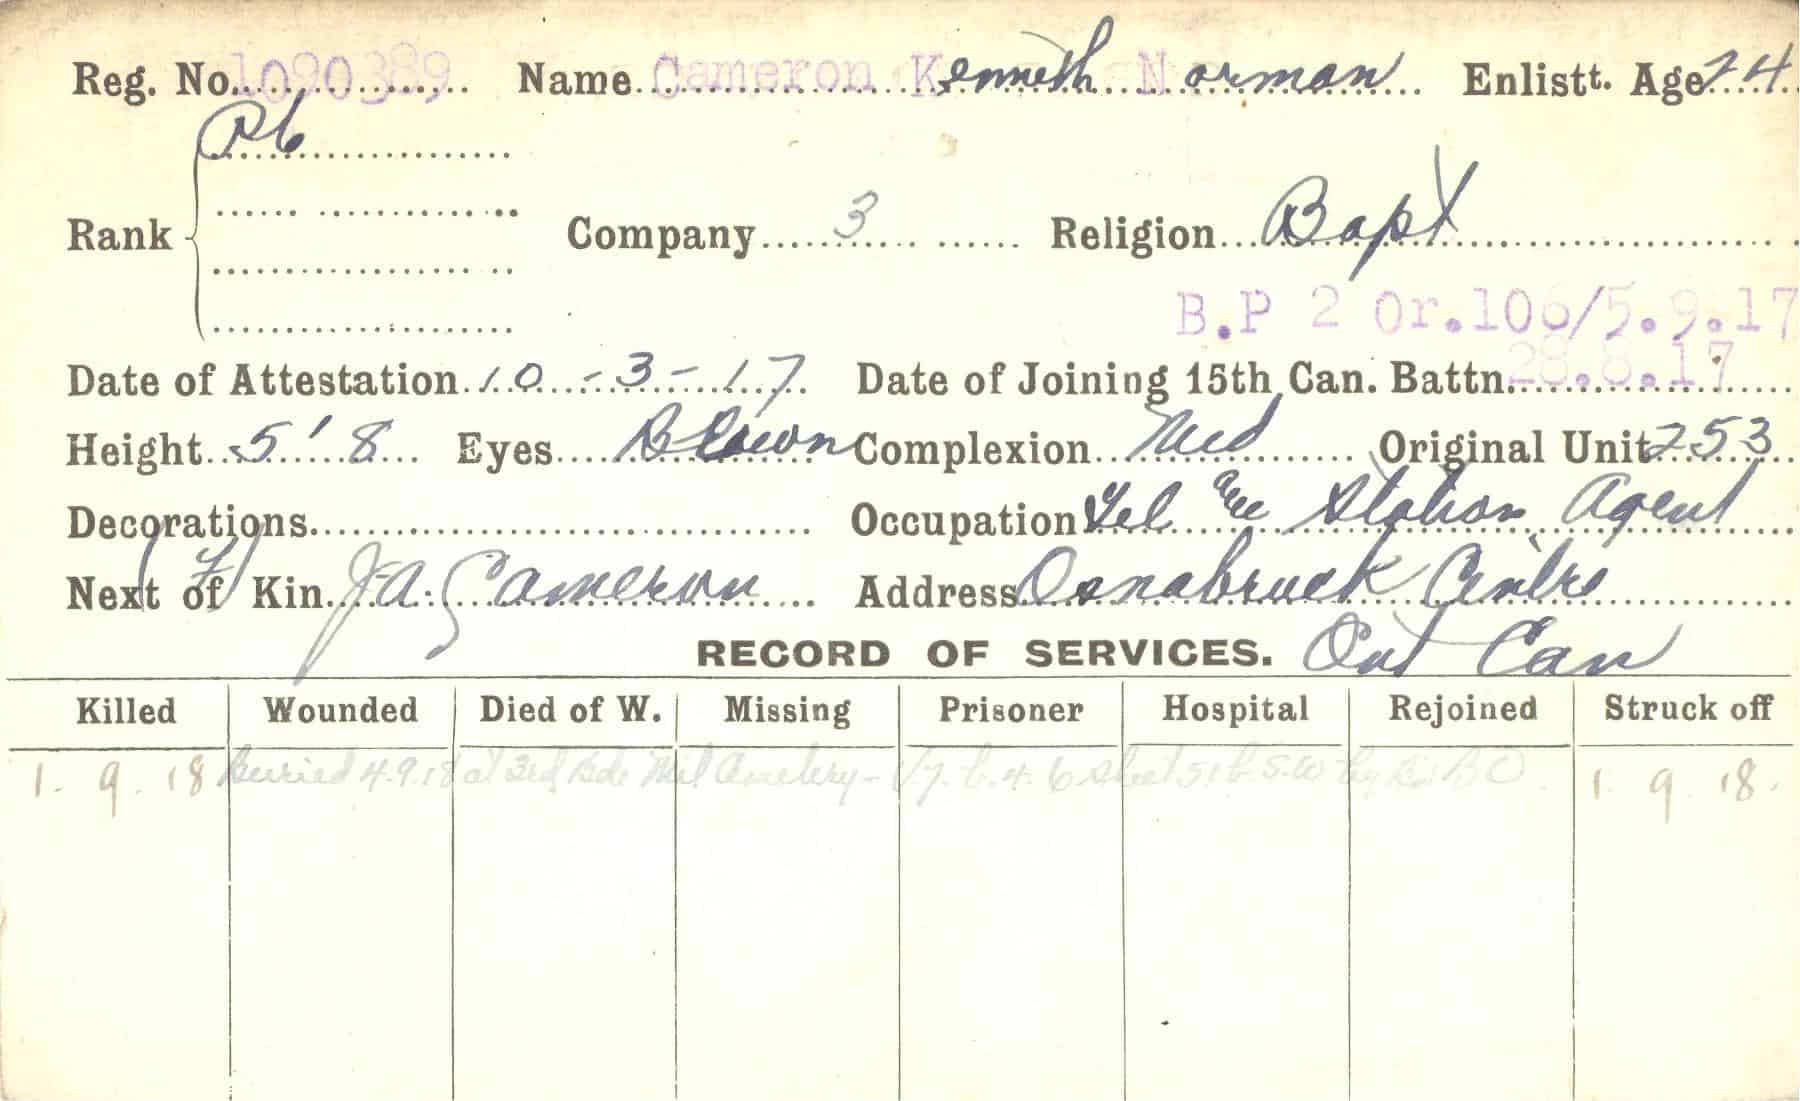 Reg. No. 1090389 Name Cameron Kenneth Norman Enlistt. Age 24
Pte
Rank Company 3 Religion Bapt
B.P 2 Or.106/5.9.17
28.8.17
Date of Attestation 10-3-17 Date of Joining 15th Can. Battn.
Height 5' 8 Eyes Brown Complexion Med Original Unit 253
Decorations Occupation Tel Station Agent
Next of Kin (F) J.A. Cameron Address Osnabruck Centre
RECORD OF SERVICES. Ont Can
Killed Wounded Died of W. Missing Prisoner Hospital Rejoined Struck off
1. 9. 18 Buried 4.9.18 at 3rd Bde Mil Cemetery - 6 Sheet 51 by B O 1. 9. 18.